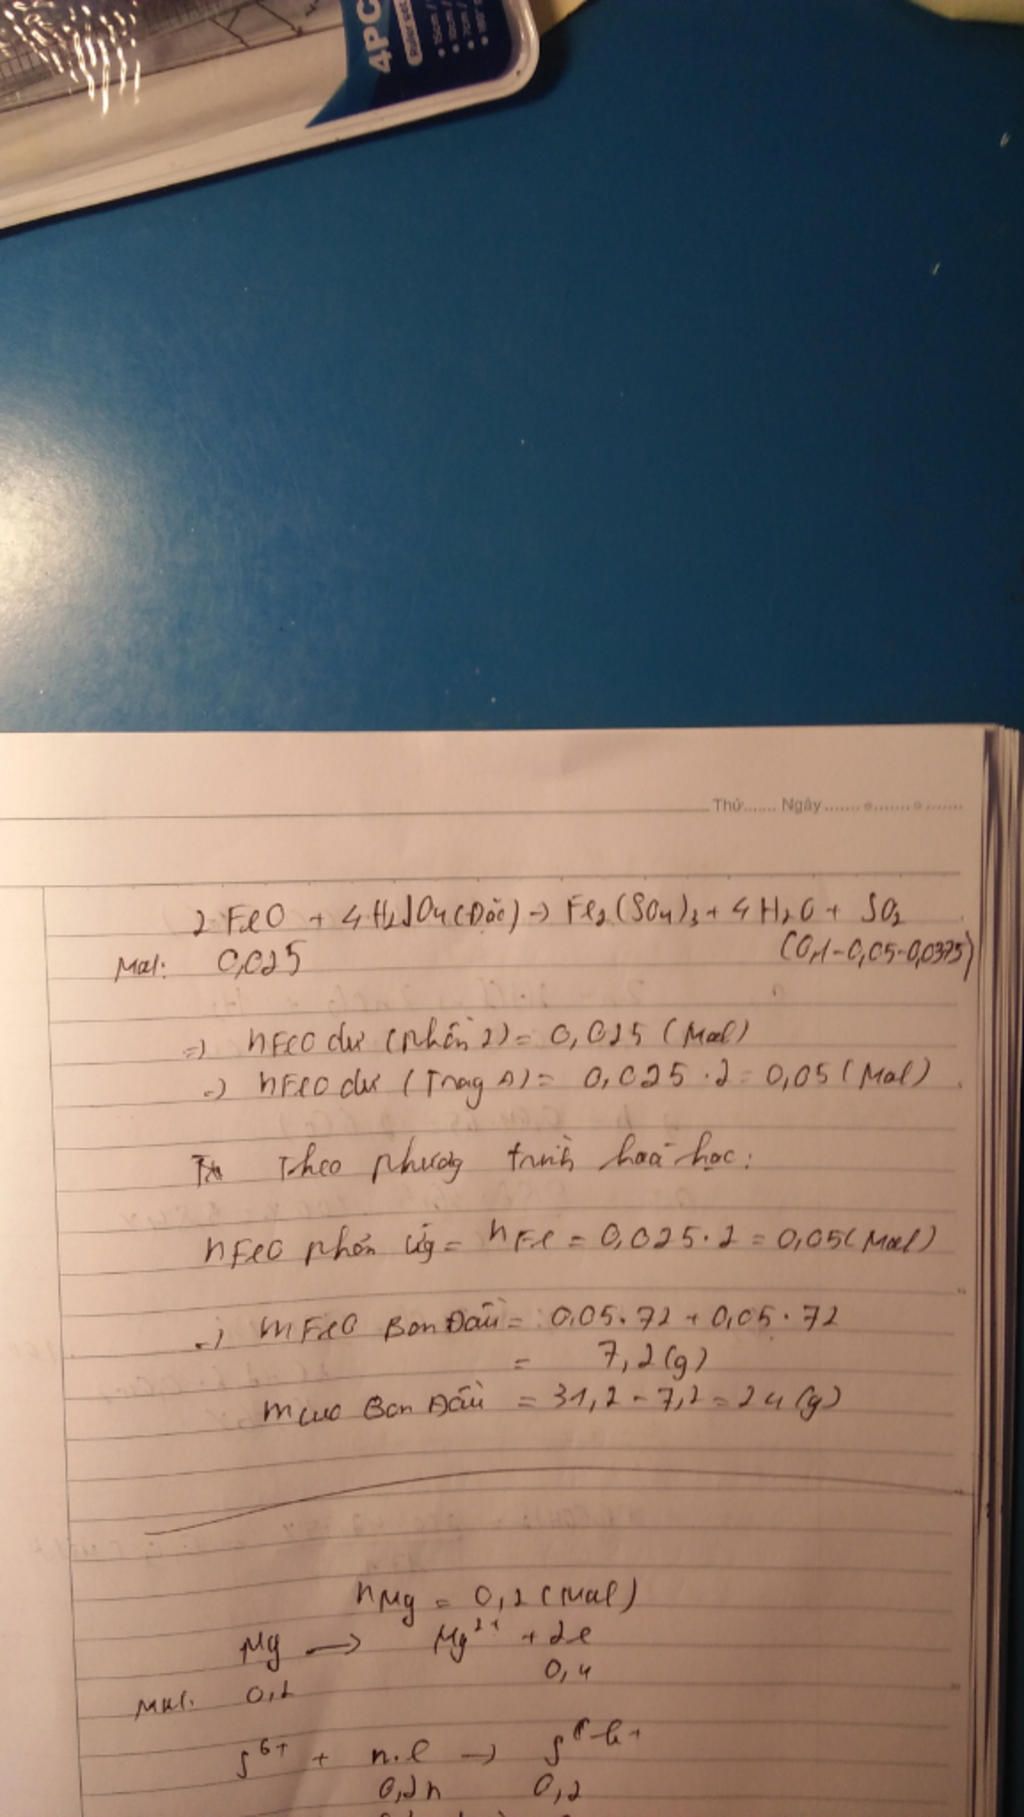 4PC
Thứ....... Ngày
2 FeO + 4 H₂SO₄ (Đặc) → Fe₂(SO₄)₃ + 4 H₂O + SO₂
Mol: 0,025 (0,1-0,05-0,0375)
=) nFeO dư (phần 2) = 0,025 (Mol)
=) nFeO dư (Trong A) = 0,025 . 2 = 0,05 (Mol)
Theo phương trình hoá học:
nFeO phản ứng = nFe = 0,025 . 2 = 0,05 (Mol)
=) mFeO Ban Đầu = 0,05 . 72 + 0,05 . 72
= 7,2 (g)
mCuO Ban Đầu = 31,2 - 7,2 = 24 (g)
nMg = 0,2 (Mol)
Mg → Mg²⁺ + 2e
0,4
Mol: 0,2
S⁶⁺ + n.e →
0,2n 0,2